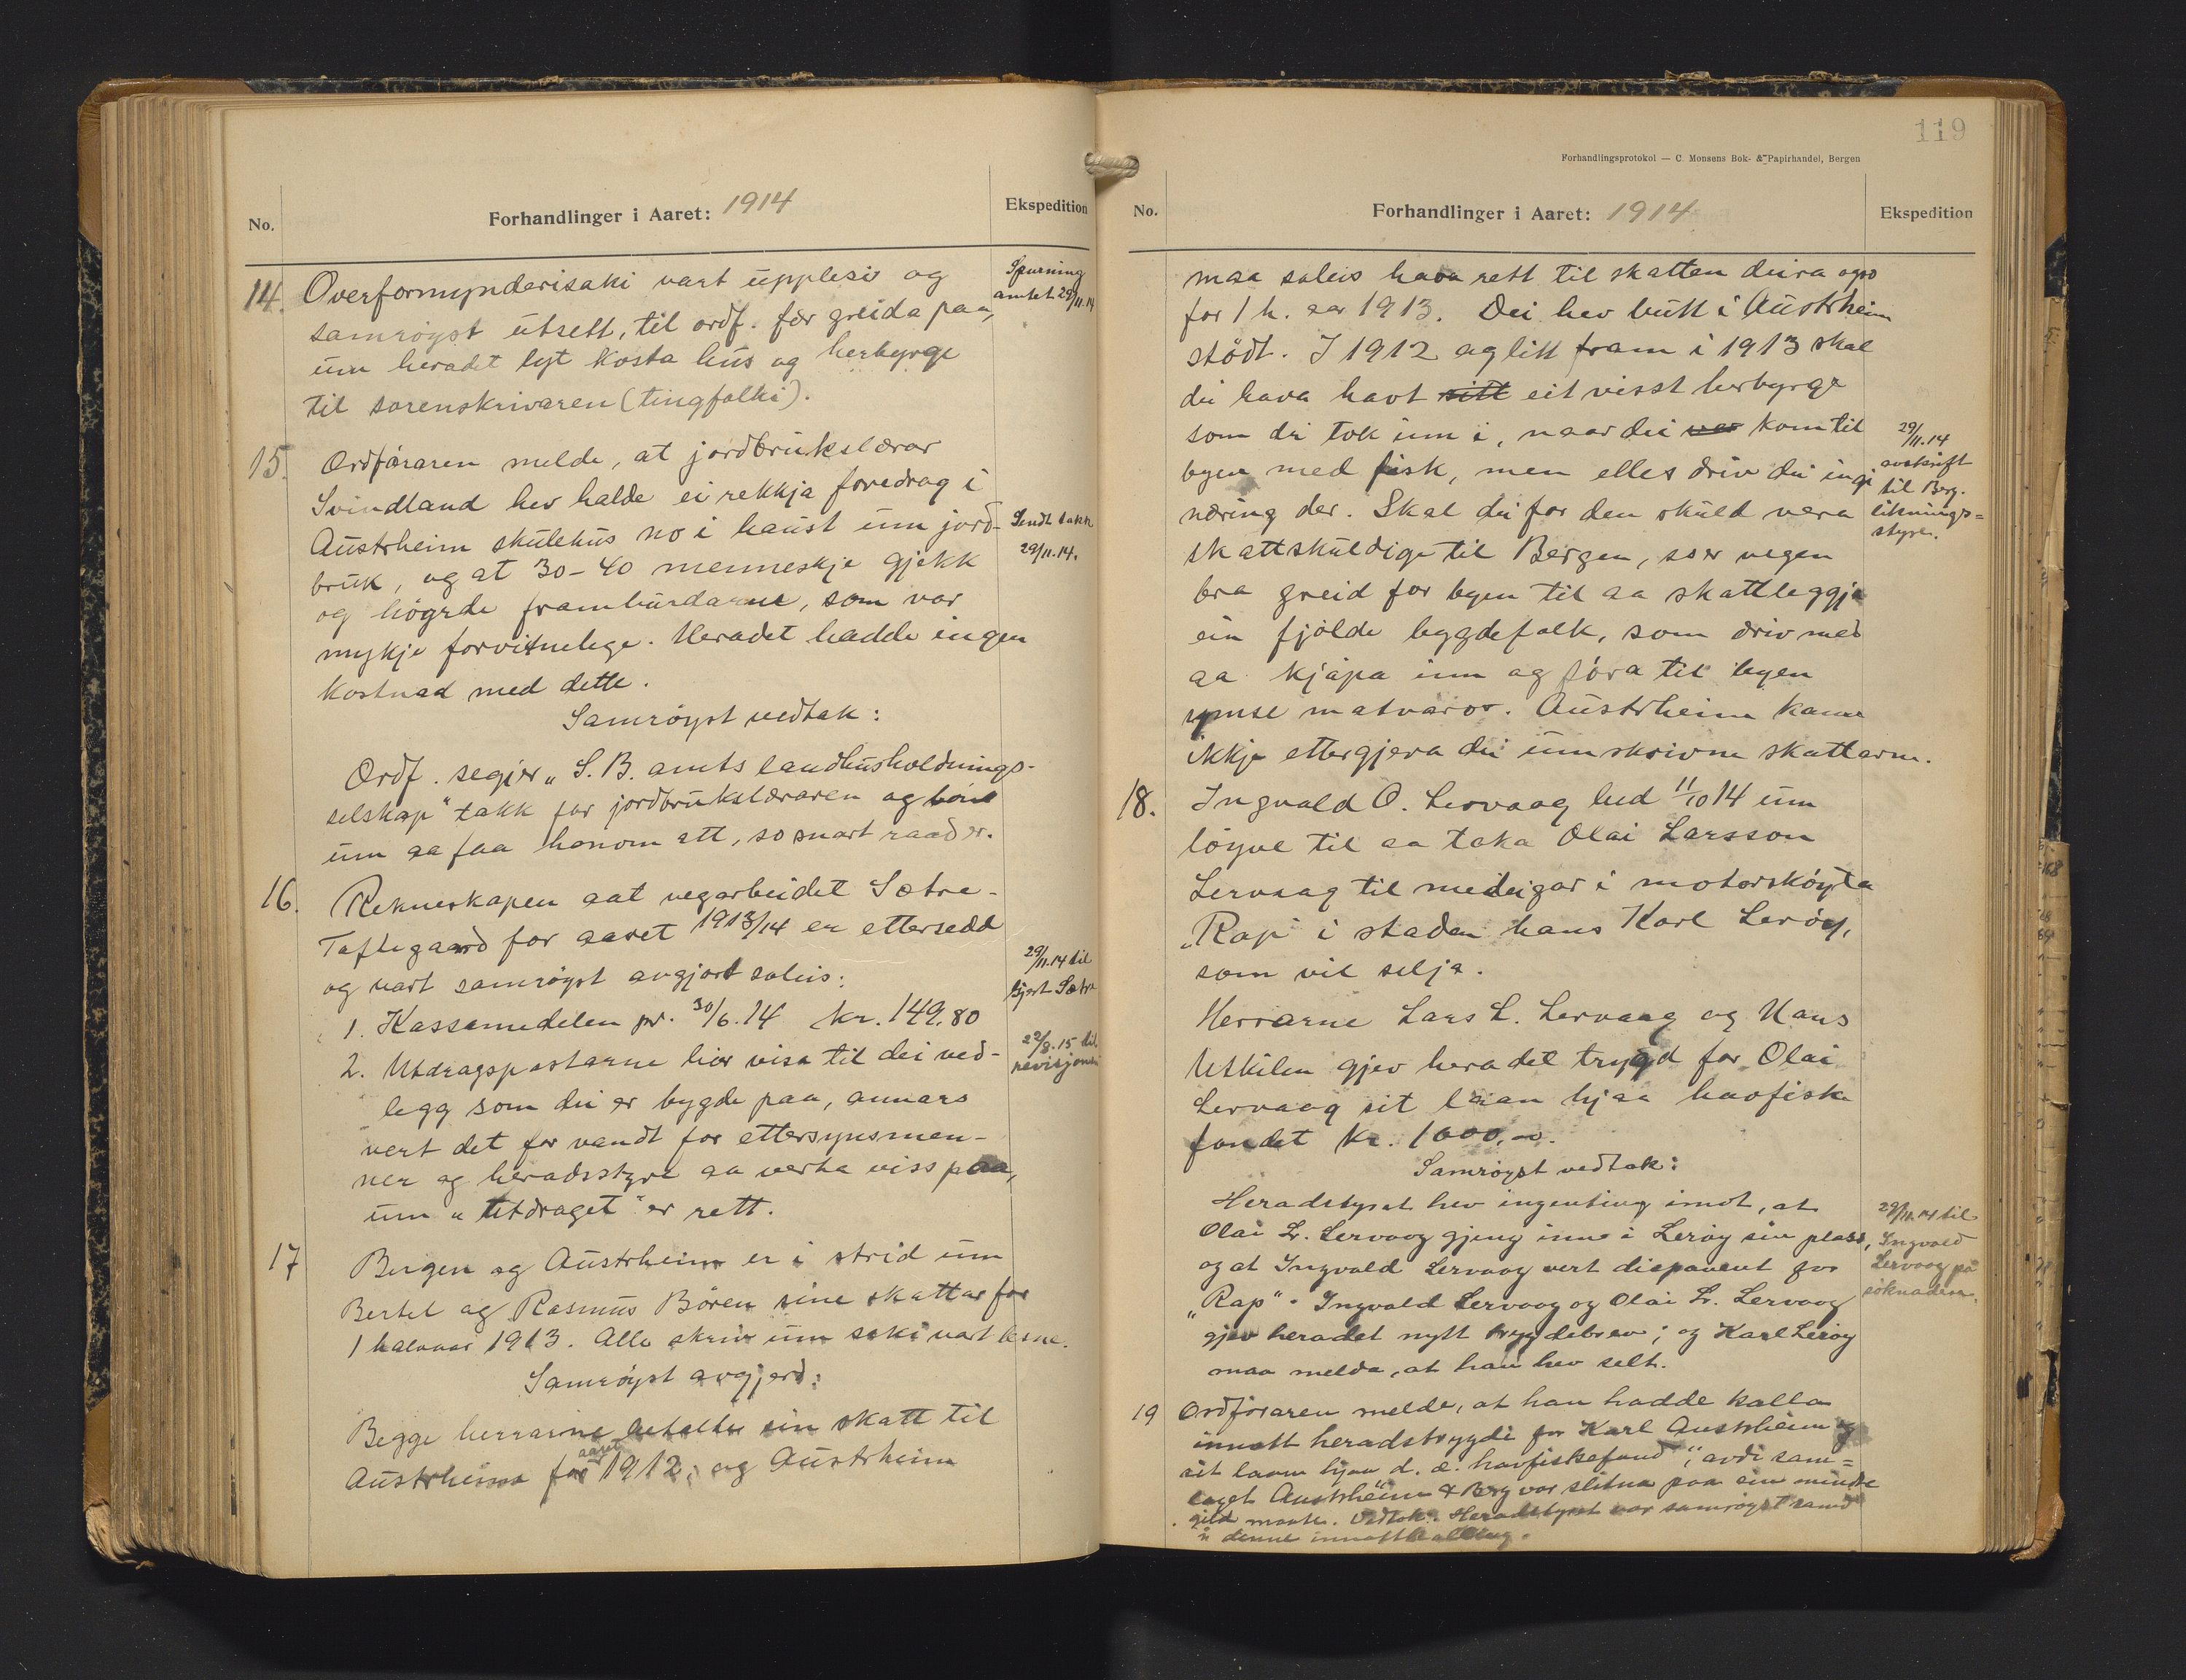 No.
Forhandlinger i Aaret: 1914
Ekspedition
14. Overformynderisaki vart upplesi og
samröyst utsett, til ordf. fær greida paa,
um heradet lyt kosta hus og herbyrge
til sorenskrivaren (tingfolki).
Spurning
amtet 29/11.14
15. Ordföraren melde, at jordbrukslærar
Svindland hev halde ei rekkja foredrag i
Austrheim skulehus no i haust um jord-
bruk, og at 30-40 menneskje gjekk
og högrde framburdarne, som var
mykje forvitnelege. Heradet hadde ingen
kostnad med dette.
Sendt takk
29/11.14.
Samröyst vedtak:
Ordf. segjer „S. B. amts landhusholdnings-
selskap" takk for jordbrukslæraren og
um aa faa honom att, so snart raad er.
16. Rekneskapen aat vegarbeidet Sætre-
Taftegaard for aaret 1913/14 er ettersedd
og vart samröyst avgjort soleis:
1. Kassemedelen pr. 30/6.14 kr. 149,80
2. Utdragspostarne bör visa til dei ved-
legg som dei er bygde paa, annars
vert det for vandt for ettersynsmen-
ner og heradsstyre aa verta viss paa,
um „utdraget" er rett.
29/11.14 til
Gjert Sætre
22/8.15 til
revisjonen
17 Bergen og Austrheim er i strid um
Bertel og Rasmus Bören sine skattar for
1 halvaar 1913. Alle skriv um saki vart lesne.
Samröyst avgjerd:
Begge herrarne betalte sin skatt til
Austrheim for aaret 1912, og Austrheim
119
Forhandlingsprotokol — C. Monsens Bok- & Papirhandel, Bergen
No.
Forhandlinger i Aaret: 1914
Ekspedition
maa soleis hava rett til skatten deira ogso
for 1 h. aar 1913. Dei hev butt i Austrheim
stödt. I 1912 og litt fram i 1913 skal
dei hava havt sitt eit visst herbyrge
som dei tok inn i, naar dei var kom til
byen med fisk, men elles driv dei ingi
næring der. Skal dei for den skuld vera
skattskuldige til Bergen, so er vegen
bra greid for byen til aa skattleggja
ein fjölde bygdefolk, som driv med
aa kjöpa inn og föra til byen
ymse matvaror. Austrheim kann
ikkje ettergjeva dei umskrivne skattarne.
29/11.14
avskrift
til Berg.
liknings=
styre.
18. Ingvald O. Lervaag bed 11/10 14 um
löyve til aa taka Olai Larsson
Lervaag til medeigar i motorsköyta
„Rap" i staden hans Karl Leröy,
som vil selja.
Herrarne Lars L. Lervaag og Hans
Utkilen gjev heradet trygd for Olai
Lervaag sit laan hjaa havfiske
fondet kr. 1000,00.
Samröyst vedtak:
Heradstyret hev ingenting imot, at
Olai L. Lervaag gjeng inn i Leröy sin plass,
og at Ingvald Lervaag vert disponent for
„Rap". Ingvald Lervaag og Olai L. Lervaag
gjev heradet nytt trygdebrev; og Karl Leröy
maa melda, at han hev selt.
29/11.14 til
Ingvald
Lervaag på
söknaden.
19 Ordföraren melde, at han hadde kalla
innatt heradstrygdi for Karl Austrheim
sit laan hjaa d. æ. havfiskefond", avdi sam=
laget Austrheim & Berg var slitna paa ein mindre
gild maate. Vedtak: Heradstyret var samröyst samd
i denne innattkalling.